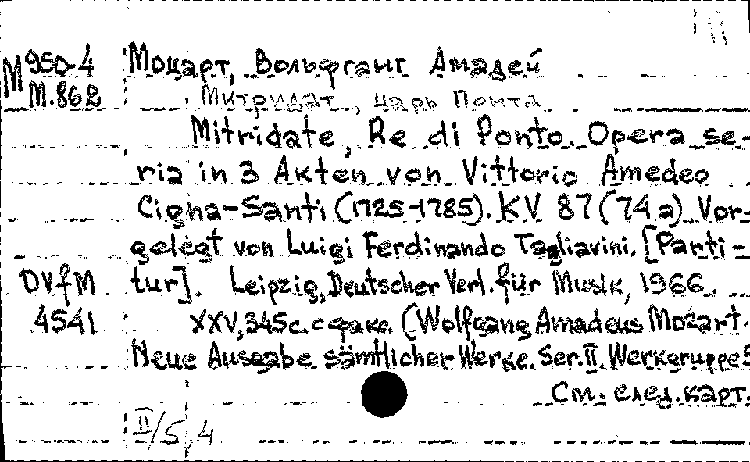 М 950-4 Моцарт, Вольфганг Амадей
М.862 Митридат, царь Понта
Mitridate, Re di Ponto. Opera se-
ria in 3 Akten von Vittorio Amedeo
Cigna-Santi (1725-1785). KV 87 (74a) Vor-
gelegt von Luigi Ferdinando Tagliavini. [Parti-
DVfM tur]. Leipzig, Deutscher Verl. für Musik, 1966.
4541 XXV, 345 с. с факс. (Wolfgang Amadeus Mozart.
Neue Ausgabe sämtlicher Werke. Ser. II Werkgruppe 5
См. след. карт.
II/5,4